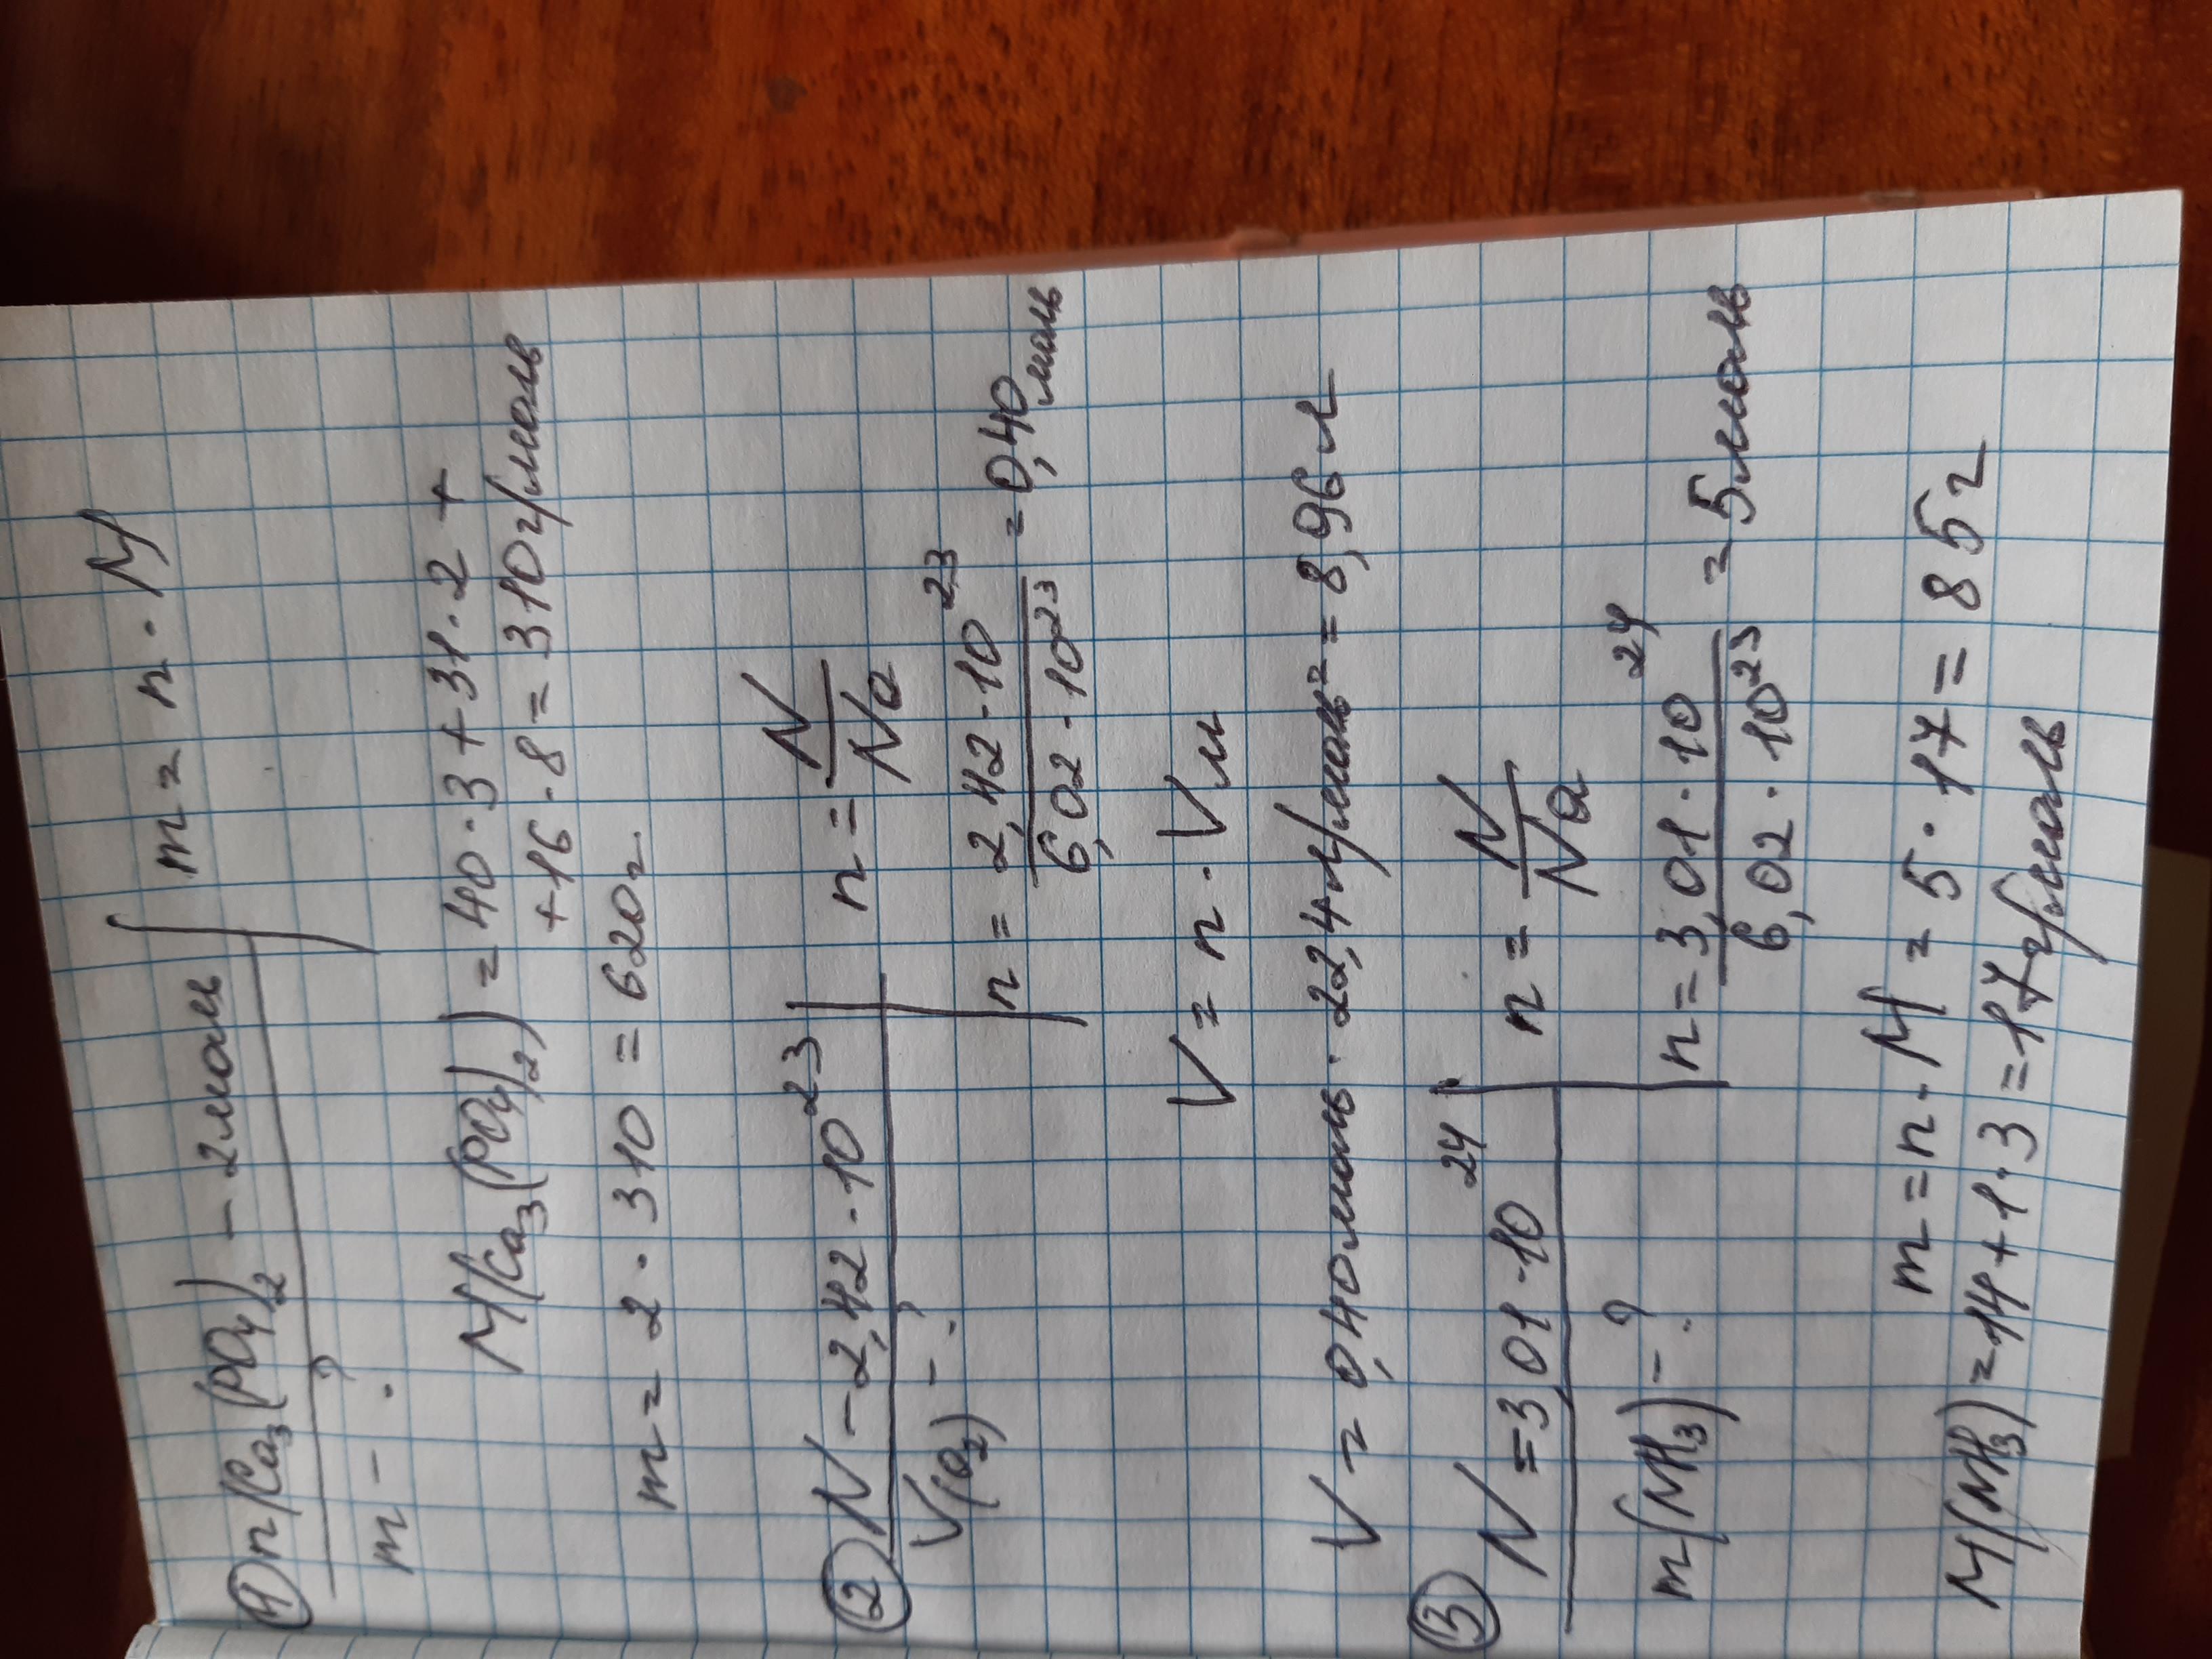 ① n(Ca₃(PO₄)₂ - 2моль | m = n · M
m - ?
M(Ca₃(PO₄)₂) = 40 · 3 + 31 · 2 +
+ 16 · 8 = 310 г/моль
m = 2 · 310 = 620г
② N - 2,42 · 10²³ | n = N/Na
V(O₂) - ?
n = 2,42 · 10²³ / 6,02 · 10²³ = 0,40 моль
V = n · Vм
V = 0,40 моль · 22,4 л/моль = = 8,96 л
③ N = 3,01 · 10²⁴ | n = N/Na
m(NH₃) - ?
n = 3,01 · 10²⁴ / 6,02 · 10²³ = 5 моль
m = n · M = 5 · 17 = 85 г
M(NH₃) = 14 + 1 · 3 = 17 г/моль